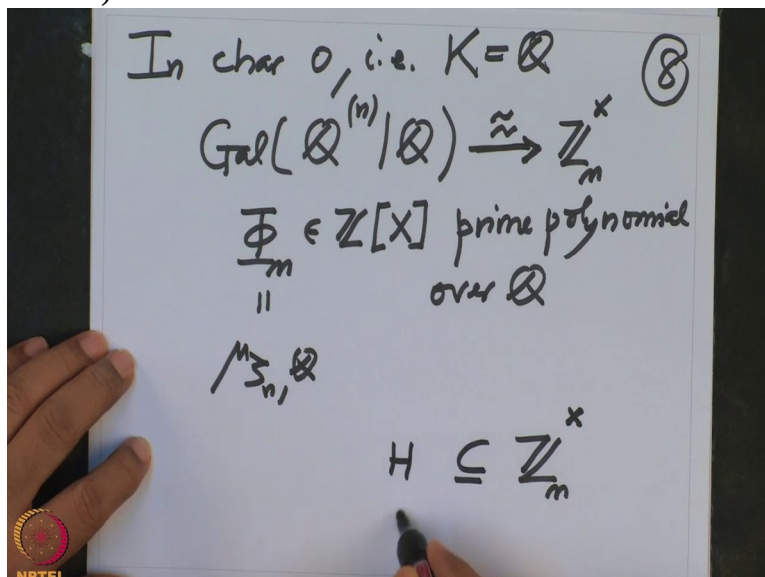 In char 0, i.e. K = ℚ ⑧
Gal(ℚ⁽ⁿ⁾|ℚ) ⥲ ℤₙˣ
Φₙ ∈ ℤ[X] prime polynomial
|| over ℚ
μ_{ζₙ, ℚ}
H ⊆ ℤₙˣ
NPTEL